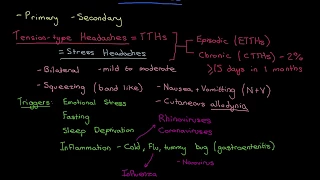 - Primary - Secondary
Tension-type Headaches = TTHs
= Stress Headaches
Episodic (ETTHs)
Chronic (CTTHs) - 2%
≥15 days in 1 months
- Bilateral - mild to moderate
- Squeezing (band like)
- Nausea + Vomitting (N+V)
- Cutaneous allodynia
Triggers: Emotional Stress
Fasting
Sleep Deprivation
Inflammation - Cold, Flu, tummy bug (gastroenteritis)
Rhinoviruses
Coronaviruses
- Norovirus
Influenza